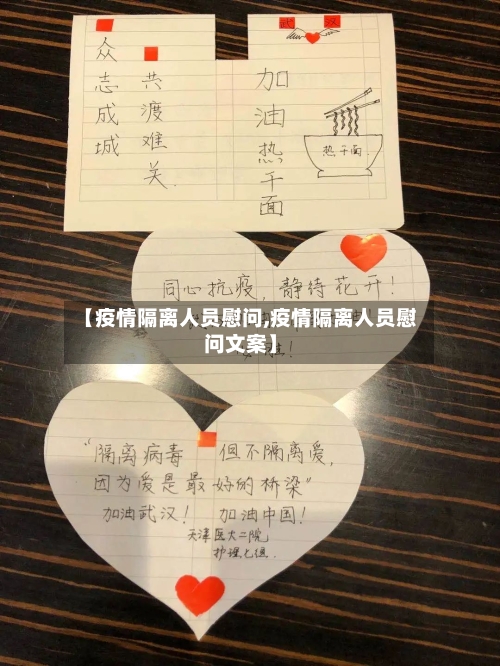 武 汉
众志成城
共渡难关.
加油热干面
热干面
同心抗疫，静待花开！
【疫情隔离人员慰问,疫情隔离人员慰
问文案】
“隔离病毒 但不隔离爱，
因为爱是最好的桥梁”
加油武汉！ 加油中国！
天津医大二院
护理七组.